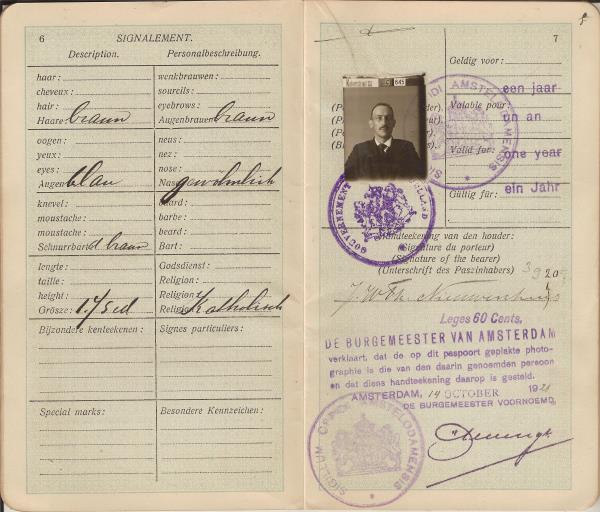 6 SIGNALEMENT.
Description. Personalbeschreibung.
haar:
cheveux:
hair:
Haare braun
wenkbrauwen:
sourcils:
eyebrows:
Augenbrauen braun
oogen:
yeux:
eyes:
Augen blau
neus:
nez:
nose:
Nase gewöhnlich
knevel:
moustache:
moustache:
Schnurrbart d braun
baard:
barbe:
beard:
Bart:
lengte:
taille:
height:
Grösze:
Godsdienst:
Religion:
Religion:
Religion Katholisch
Bijzondere kenteekenen:
Signes particuliers:
Special marks:
Besondere Kennzeichen:
7
645
Geldig voor:
een jaar
Valable pour:
un an
Valid for:
one year
Gültig für:
ein Jahr
SIGILLUM OPPIDI AMSTELODAMENSIS
GOUVERNEMENT
Handteekening van den houder:
(Signature du porteur)
(Signature of the bearer)
(Unterschrift des Paszinhabers)
Leges 60 Cents,
DE BURGEMEESTER VAN AMSTERDAM
verklaart, dat de op dit paspoort geplakte photo-
graphie is die van den daarin genoemden persoon
en dat diens handteekening daarop is gesteld.
AMSTERDAM, 14 OCTOBER
DE BURGEMEESTER VOORNOEMD,
SIGILLUM OPPIDI AMSTELODAMENSIS